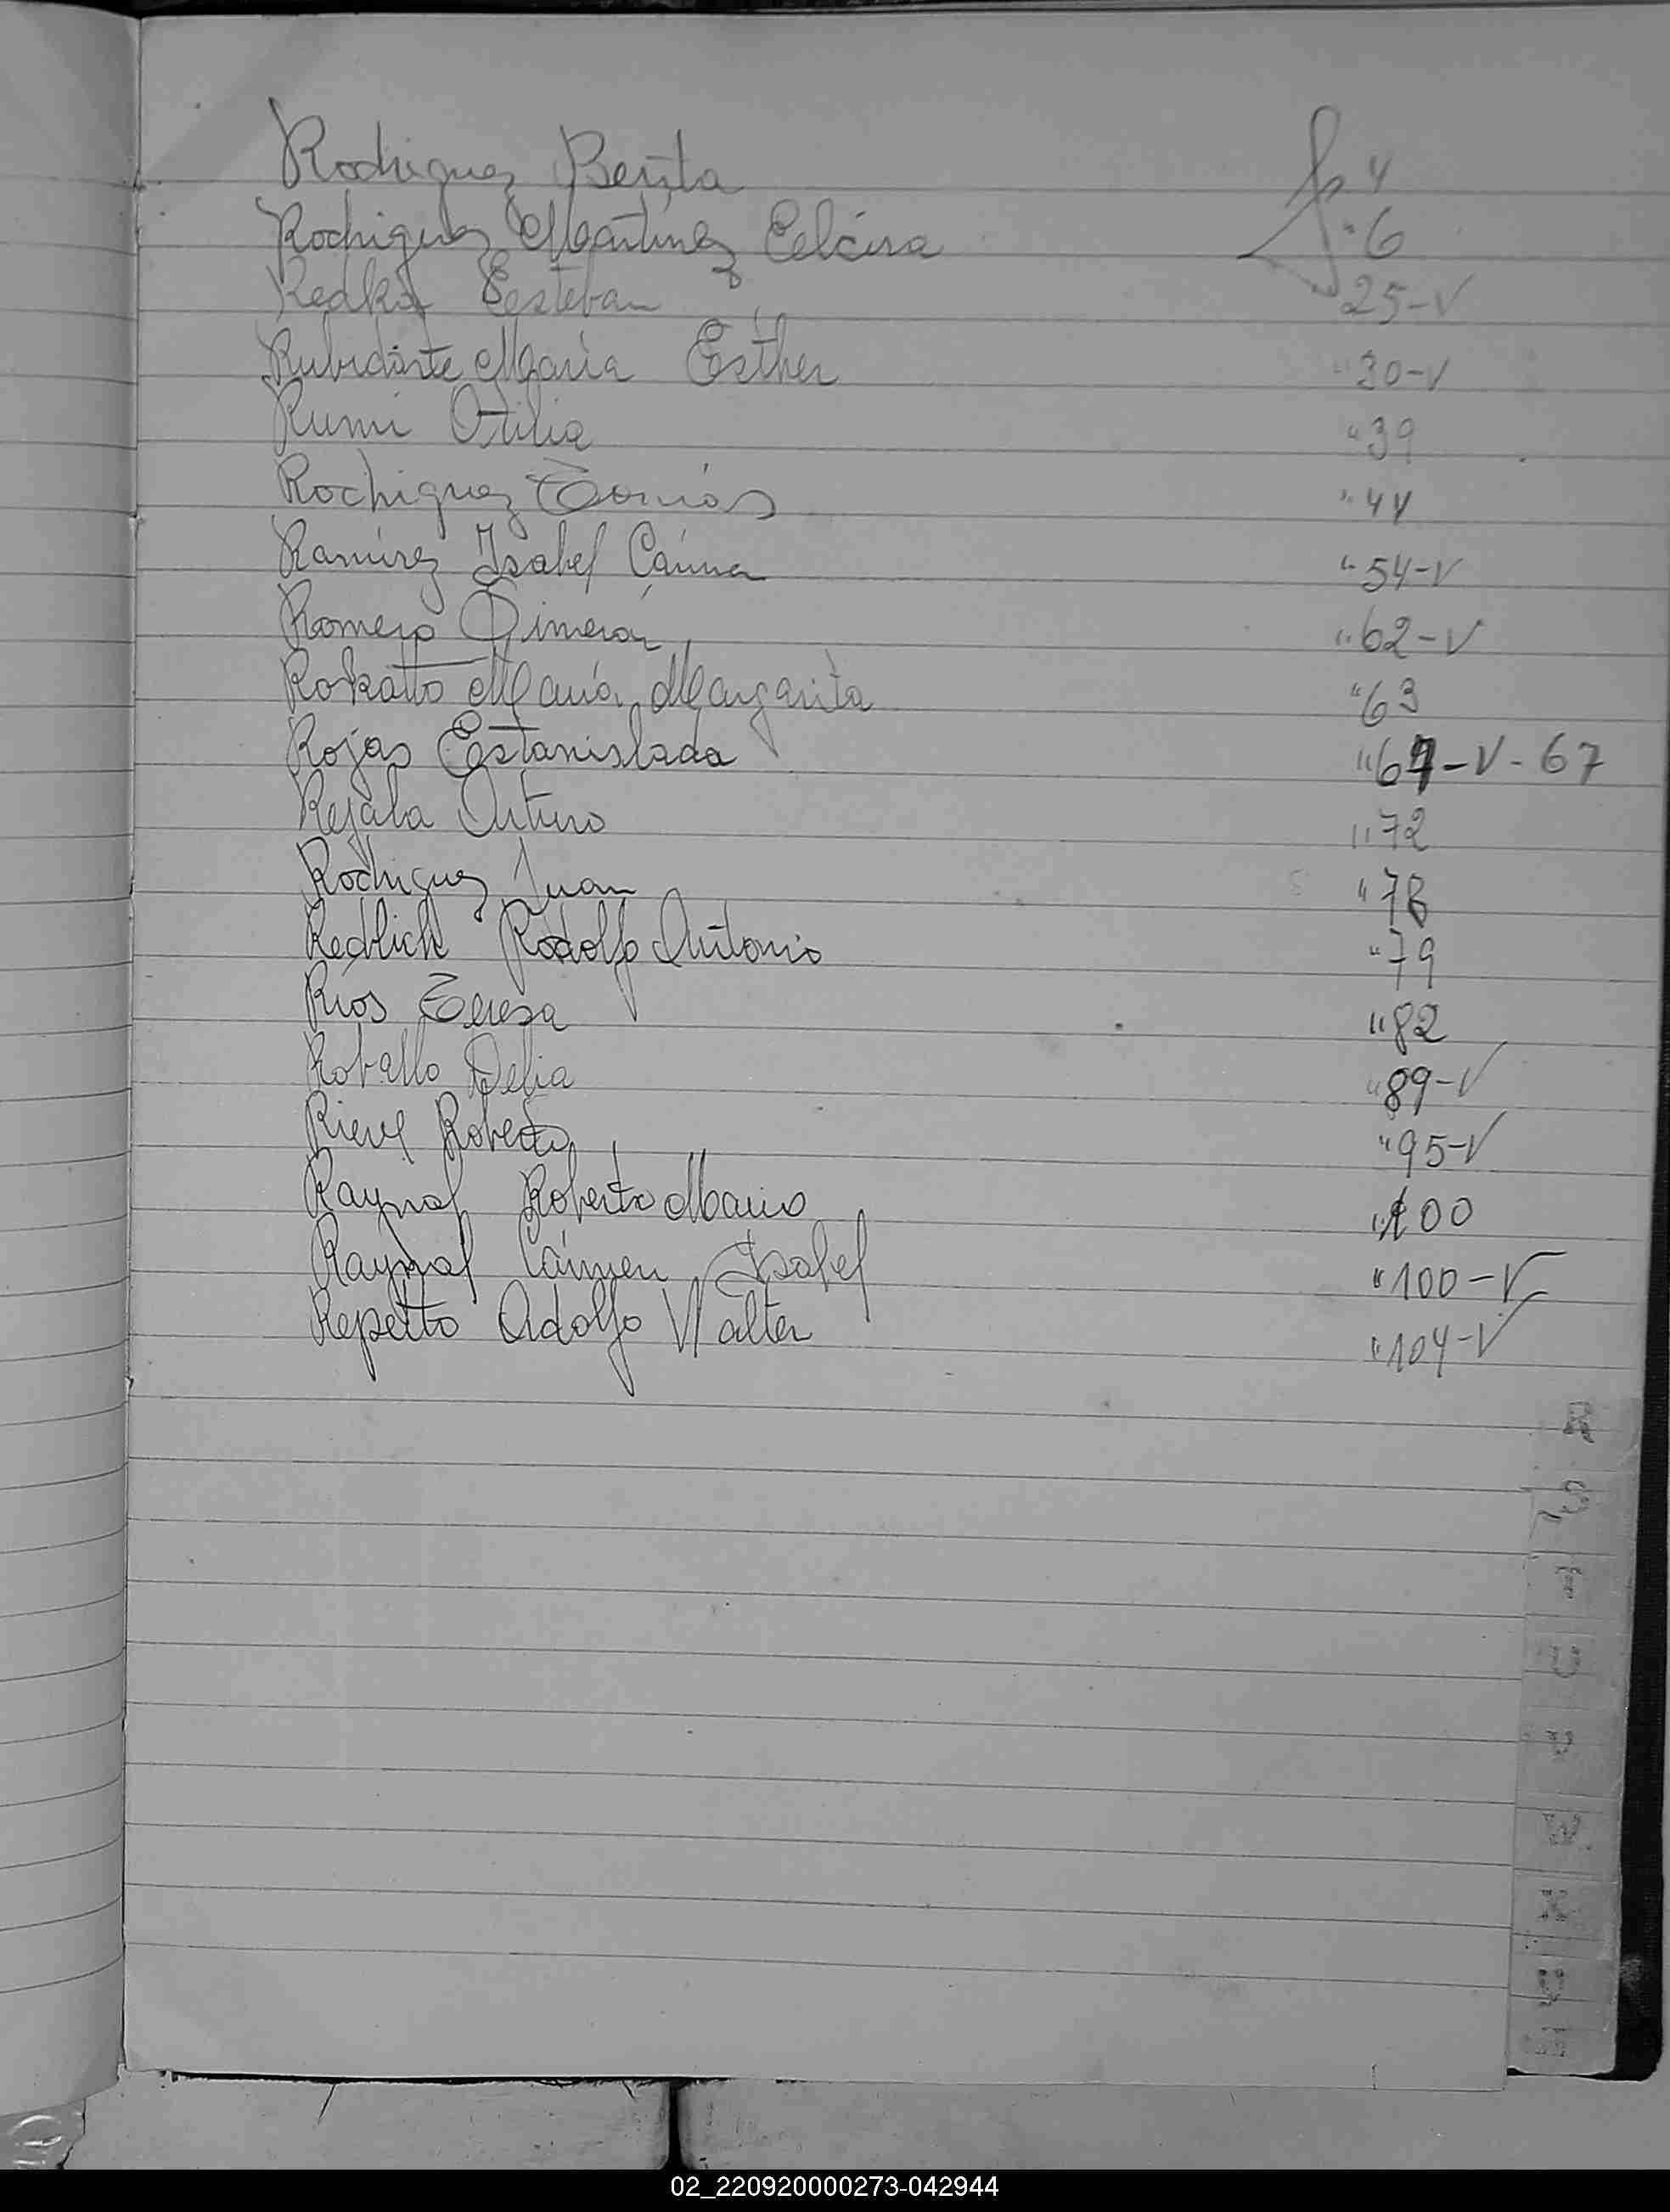 Rodriguez Benita fo 4
Rodriguez Martinez Elcira " 6
Redko Esteban 25-V
María Esther " 30-V
Rumi Otilia " 39
Rodriguez Tomás " 44
Ramirez Isabel " 54-V
Romero " 62-V
María Margarita " 63
Rojas Estanislada " 67-V-67
Rejala Arturo " 72
Rodriguez Juan " 78
Redlich Rodolfo Antonio " 79
Rios Teresa " 82
Roballo Delia " 89-V
Roberto " 95-V
Raynal Roberto Mario " 100
Raynal Cármen Isabel " 100-V
Repetto Adolfo Walter " 104-V
R
02_220920000273-042944